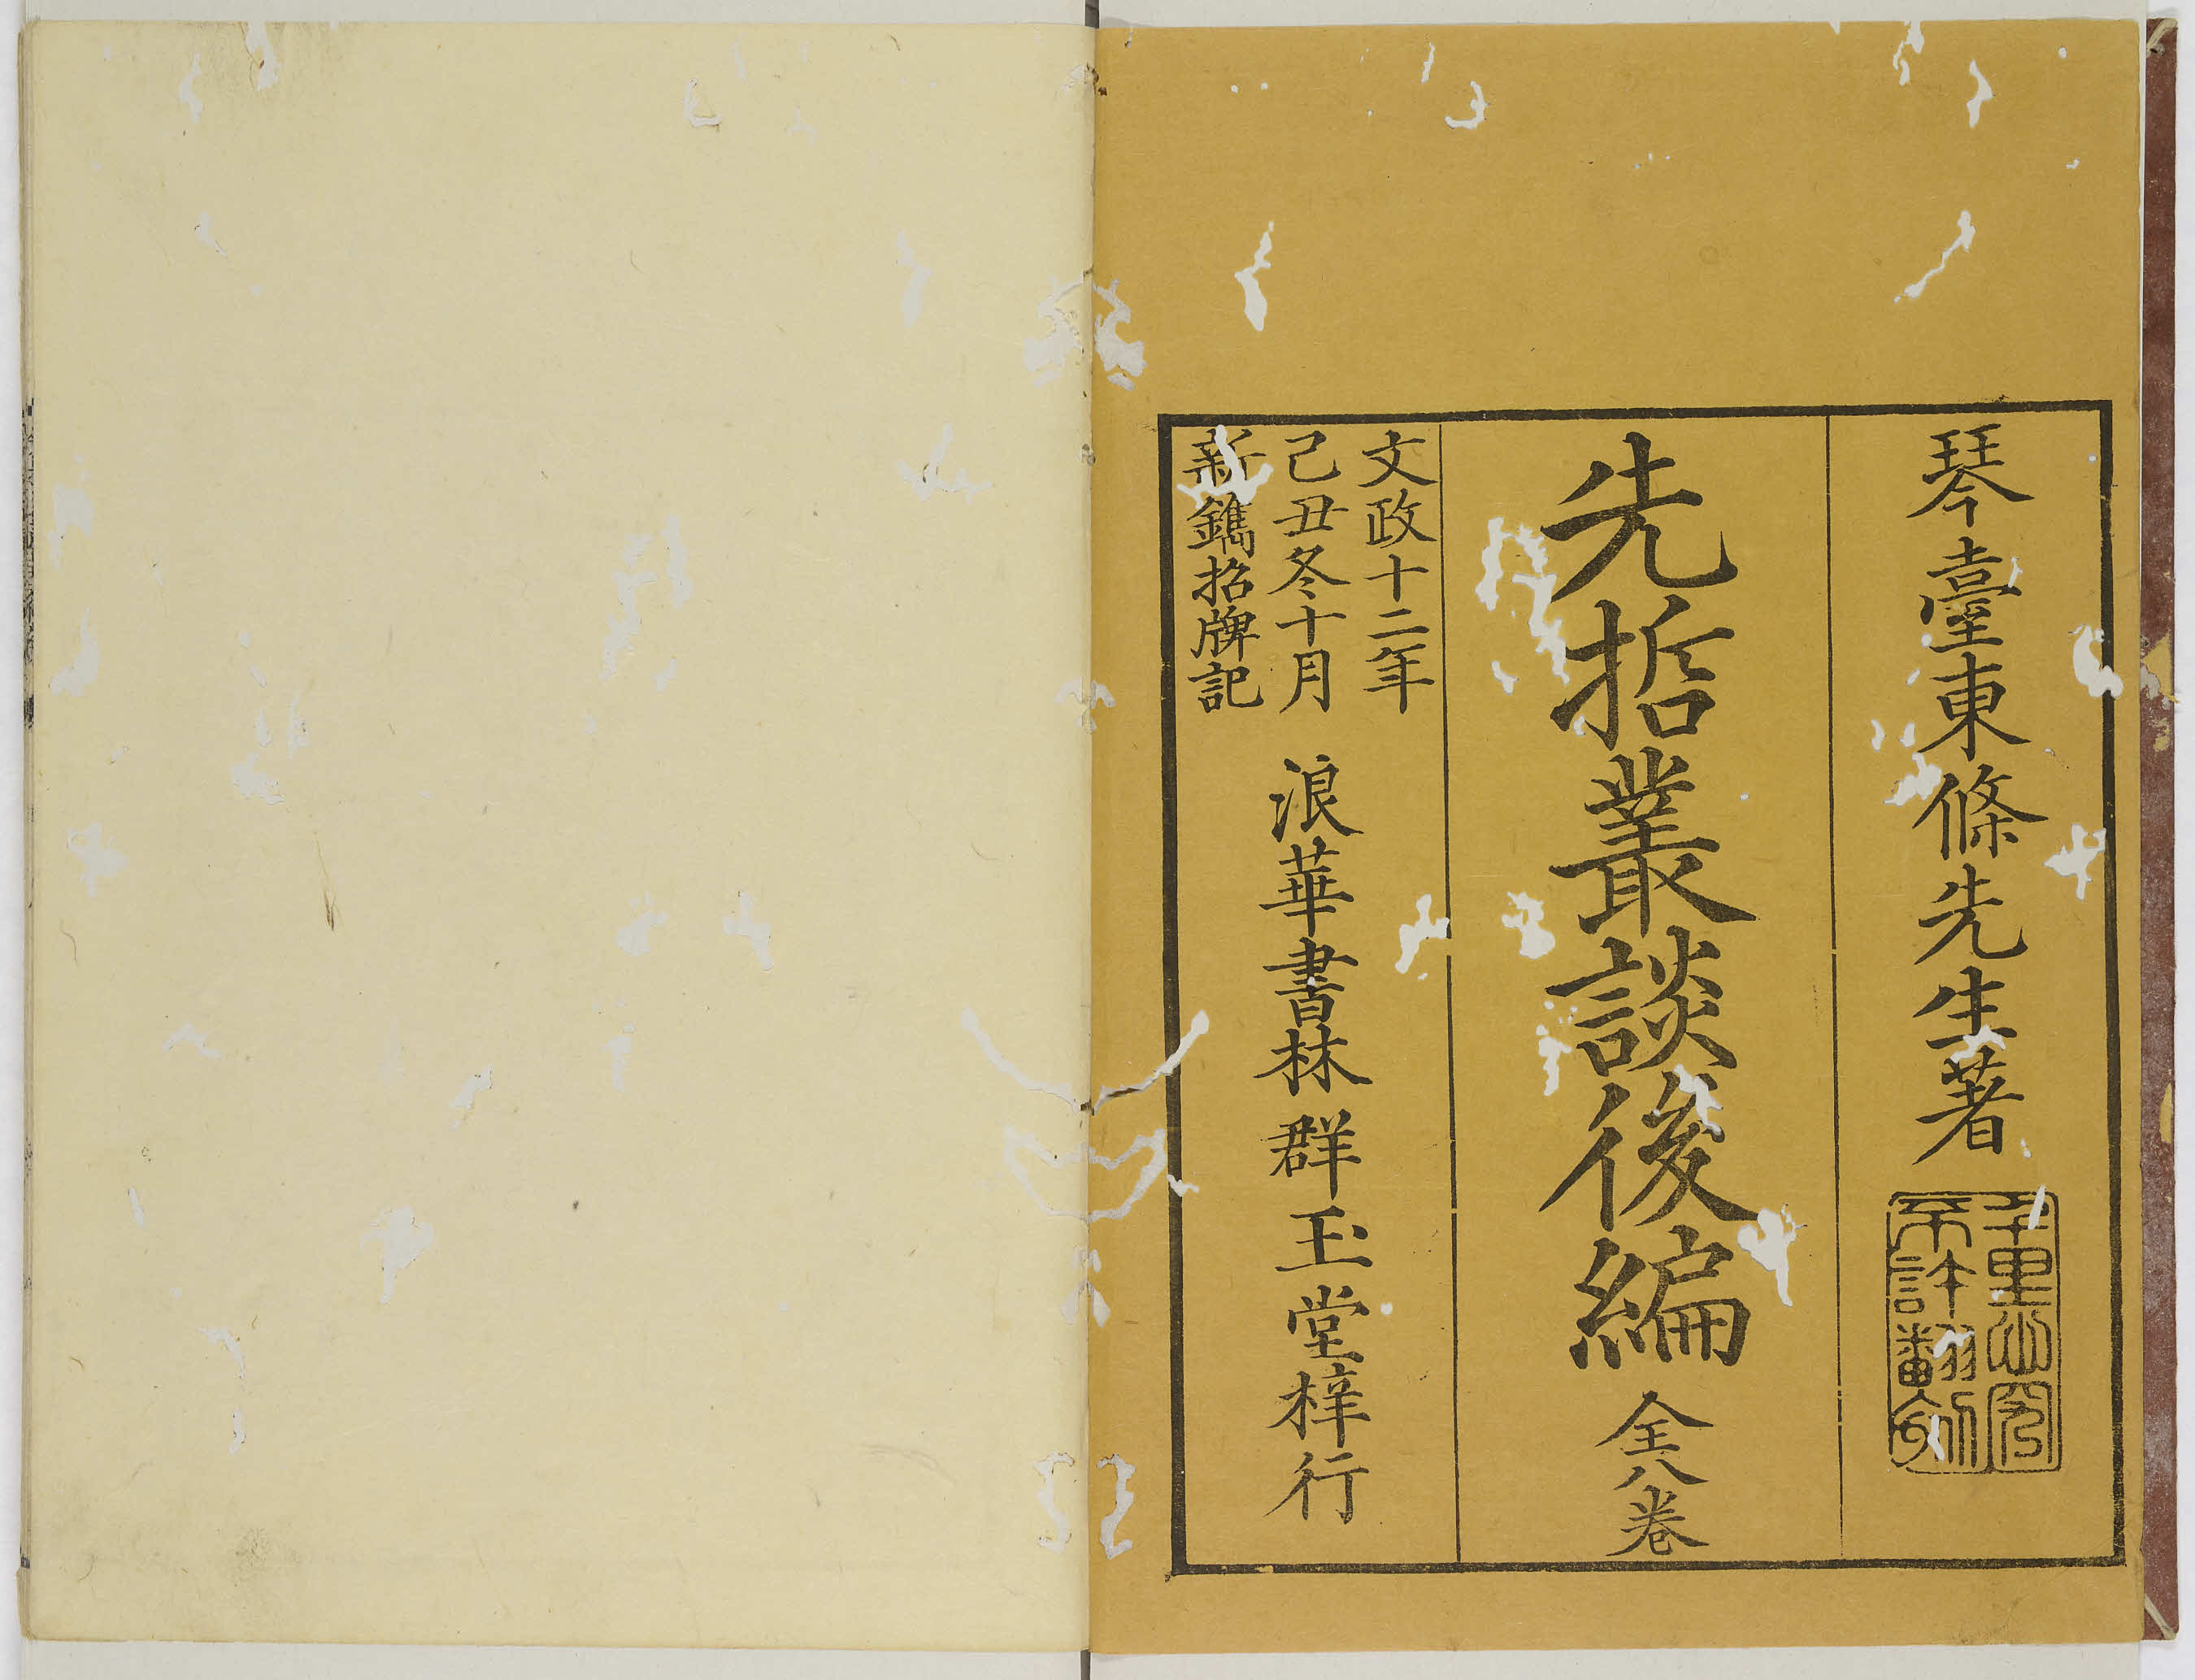 琴臺東條先生著
千里必究
不許翻刻
先哲叢談後編 全八卷
文政十二年
己丑冬十月
新鐫招牌記
浪華書林群玉堂梓行